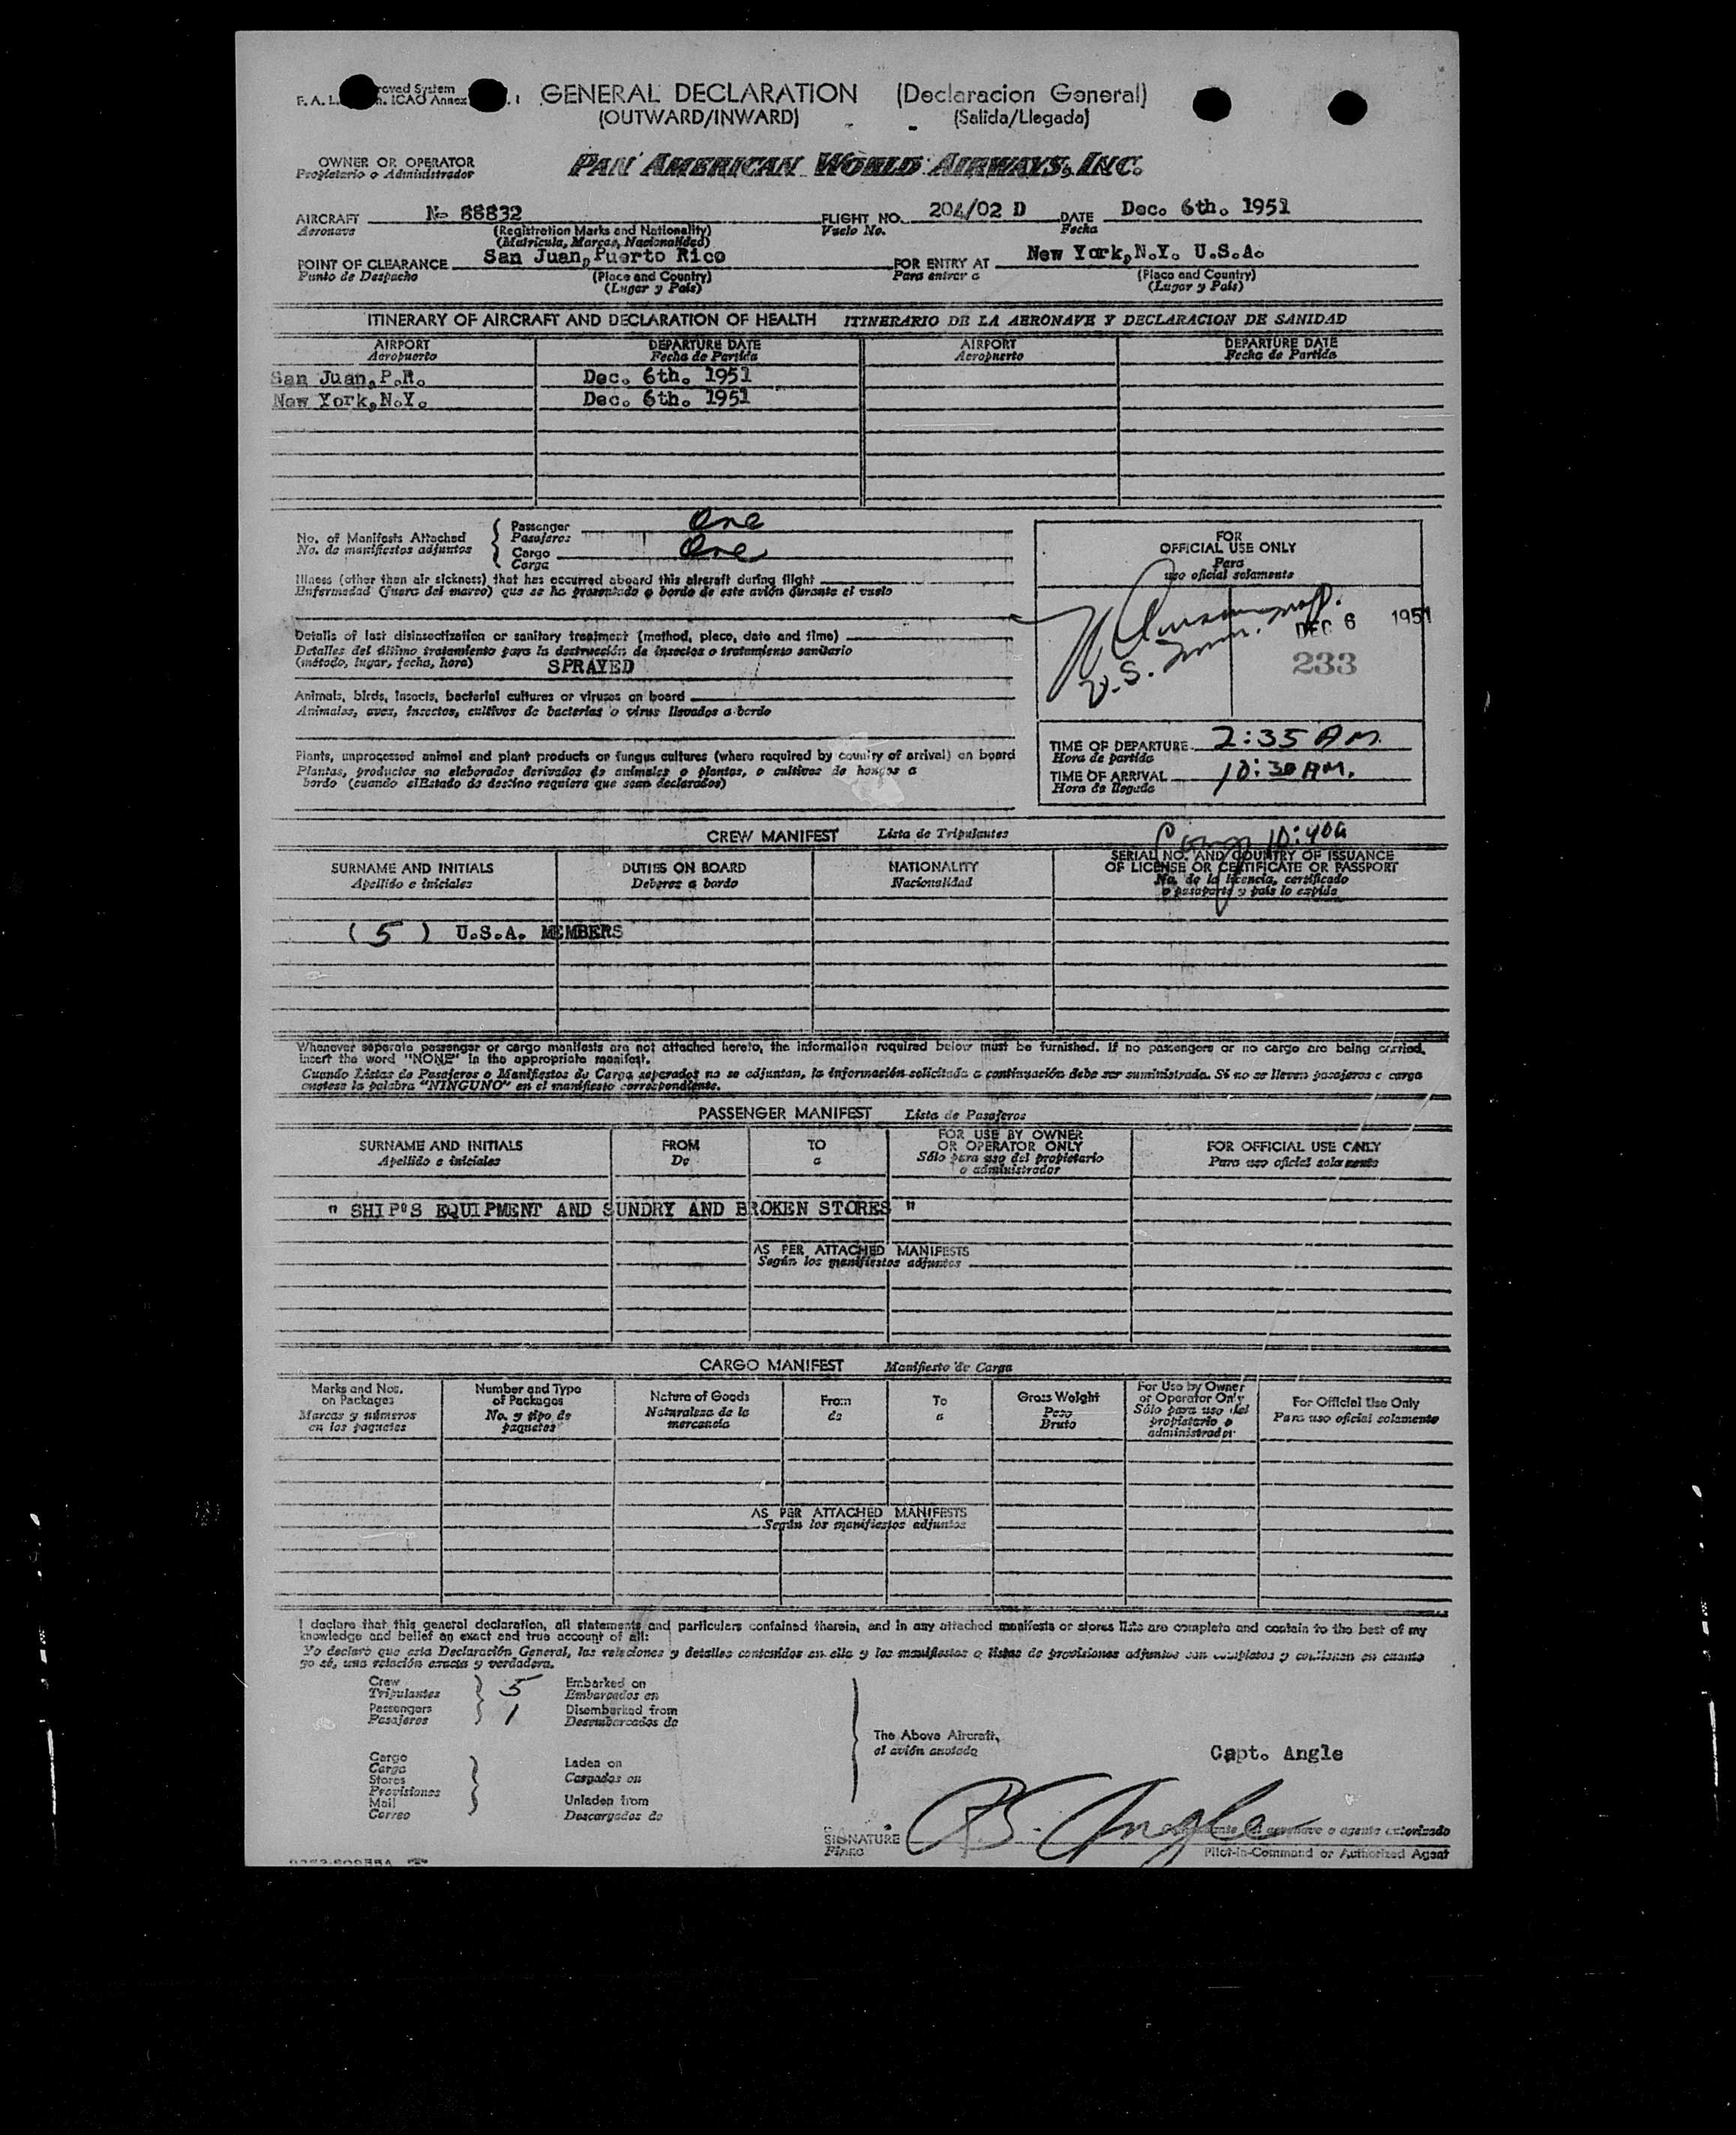 roved System
F. A. L. n. ICAO Annex . 1
GENERAL DECLARATION (Declaracion General)
(OUTWARD/INWARD) (Salida/Llegada)
OWNER OR OPERATOR
Propietario o Administrador
PAN AMERICAN WORLD AIRWAYS, INC.
AIRCRAFT No 88832 FLIGHT NO. 204/02 D DATE Dec. 6th. 1951
Aeronave (Registration Marks and Nationality) Vuelo No. Fecha
(Matricula, Marcas, Nacionalidad)
POINT OF CLEARANCE San Juan, Puerto Rico FOR ENTRY AT New York, N.Y. U.S.A.
Punto de Despacho (Place and Country) Para entrar a (Place and Country)
(Lugar y País) (Lugar y País)
ITINERARY OF AIRCRAFT AND DECLARATION OF HEALTH ITINERARIO DE LA AERONAVE Y DECLARACION DE SANIDAD
AIRPORT DEPARTURE DATE AIRPORT DEPARTURE DATE
Aeropuerto Fecha de Partida Aeropuerto Fecha de Partida
San Juan, P.R. Dec. 6th. 1951
New York, N.Y. Dec. 6th. 1951
No. of Manifests Attached
No. de manifiestos adjuntos
Passenger One
Pasajeros
Cargo One
Carga
Illness (other than air sickness) that has occurred aboard this aircraft during flight
Enfermedad (fuera del mareo) que se ha presentado a bordo de este avión durante el vuelo
Details of last disinsectization or sanitary treatment (method, place, date and time)
Detalles del último tratamiento para la destrucción de insectos o tratamiento sanitario
(método, lugar, fecha, hora) SPRAYED
Animals, birds, insects, bacterial cultures or viruses on board
Animales, aves, insectos, cultivos de bacterias o virus llevados a bordo
Plants, unprocessed animal and plant products or fungus cultures (where required by country of arrival) on board
Plantas, productos no elaborados derivados de animales o plantas, o cultivos de hongos a
bordo (cuando elEstado de destino requiere que sean declarados)
FOR
OFFICIAL USE ONLY
Para
uso oficial solamente
U.S. Imm.
DEC 6 1951
233
TIME OF DEPARTURE 2:35 AM.
Hora de partida
TIME OF ARRIVAL 10:30 AM.
Hora de llegada
Cargo 10:40a
CREW MANIFEST Lista de Tripulantes
SURNAME AND INITIALS DUTIES ON BOARD NATIONALITY SERIAL NO. AND COUNTRY OF ISSUANCE
OF LICENSE OR CERTIFICATE OR PASSPORT
Apellido e iniciales Deberes a bordo Nacionalidad No. de la licencia, certificado
o pasaporte y país lo expide
( 5 ) U.S.A. MEMBERS
Whenever separate passenger or cargo manifests are not attached hereto, the information required below must be furnished. If no passengers or no cargo are being carried,
insert the word "NONE" in the appropriate manifest.
Cuando Listas de Pasajeros o Manifiestos de Carga separados no se adjuntan, la información solicitada a continuación debe ser suministrada. Si no se lleven pasajeros o carga
anotese la palabra "NINGUNO" en el manifiesto correspondiente.
PASSENGER MANIFEST Lista de Pasajeros
SURNAME AND INITIALS FROM TO FOR USE BY OWNER
OR OPERATOR ONLY FOR OFFICIAL USE ONLY
Apellido e iniciales De a Sólo para uso del propietario
o administrador Para uso oficial solamente
" SHIP'S EQUIPMENT AND SUNDRY AND BROKEN STORES "
AS PER ATTACHED MANIFESTS
Según los manifiestos adjuntos
CARGO MANIFEST Manifiesto de Carga
Marks and Nos.
on Packages
Marcas y números
en los paquetes
Number and Type
of Packages
No. y tipo de
paquetes
Nature of Goods
Naturaleza de la
mercancía
From
de
To
a
Gross Weight
Peso
Bruto
For Use by Owner
or Operator Only
Sólo para uso del
propietario o
administrador
For Official Use Only
Para uso oficial solamente
AS PER ATTACHED MANIFESTS
Según los manifiestos adjuntos
I declare that this general declaration, all statements and particulars contained therein, and in any attached manifests or stores lists are complete and contain to the best of my
knowledge and belief an exact and true account of all:
Yo declaro que esta Declaración General, las relaciones y detalles contenidos en ella y los manifiestos o listas de provisiones adjuntos son completos y contienen en cuanto
yo sé, una relación exacta y verdadera.
Crew 5 Embarked on
Tripulantes Embarcados en
Passengers 1 Disembarked from
Pasajeros Desembarcados de
Cargo
Carga
Stores
Provisiones
Mail
Correo
Laden on
Cargados en
Unladen from
Descargados de
The Above Aircraft,
el avión anotado
Capt. Angle
SIGNATURE B. Angle
Firma
aeronave o agente autorizado
Pilot-in-Command or Authorized Agent